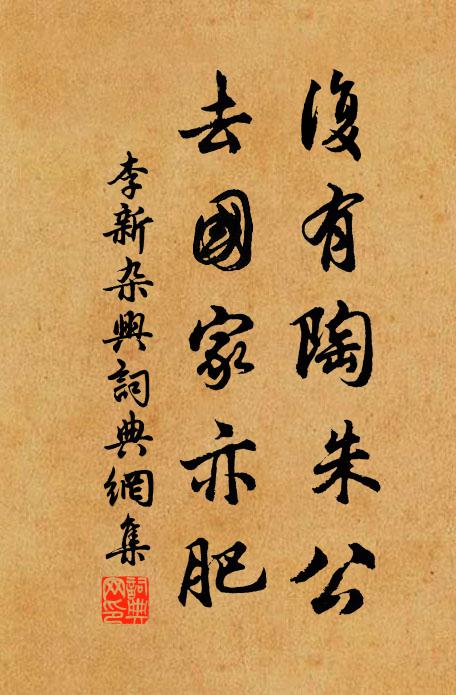 復有陶朱公
去國家亦肥
李新杂興詞典網集
詞典
网印